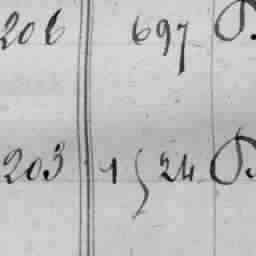 206 697
203 1524